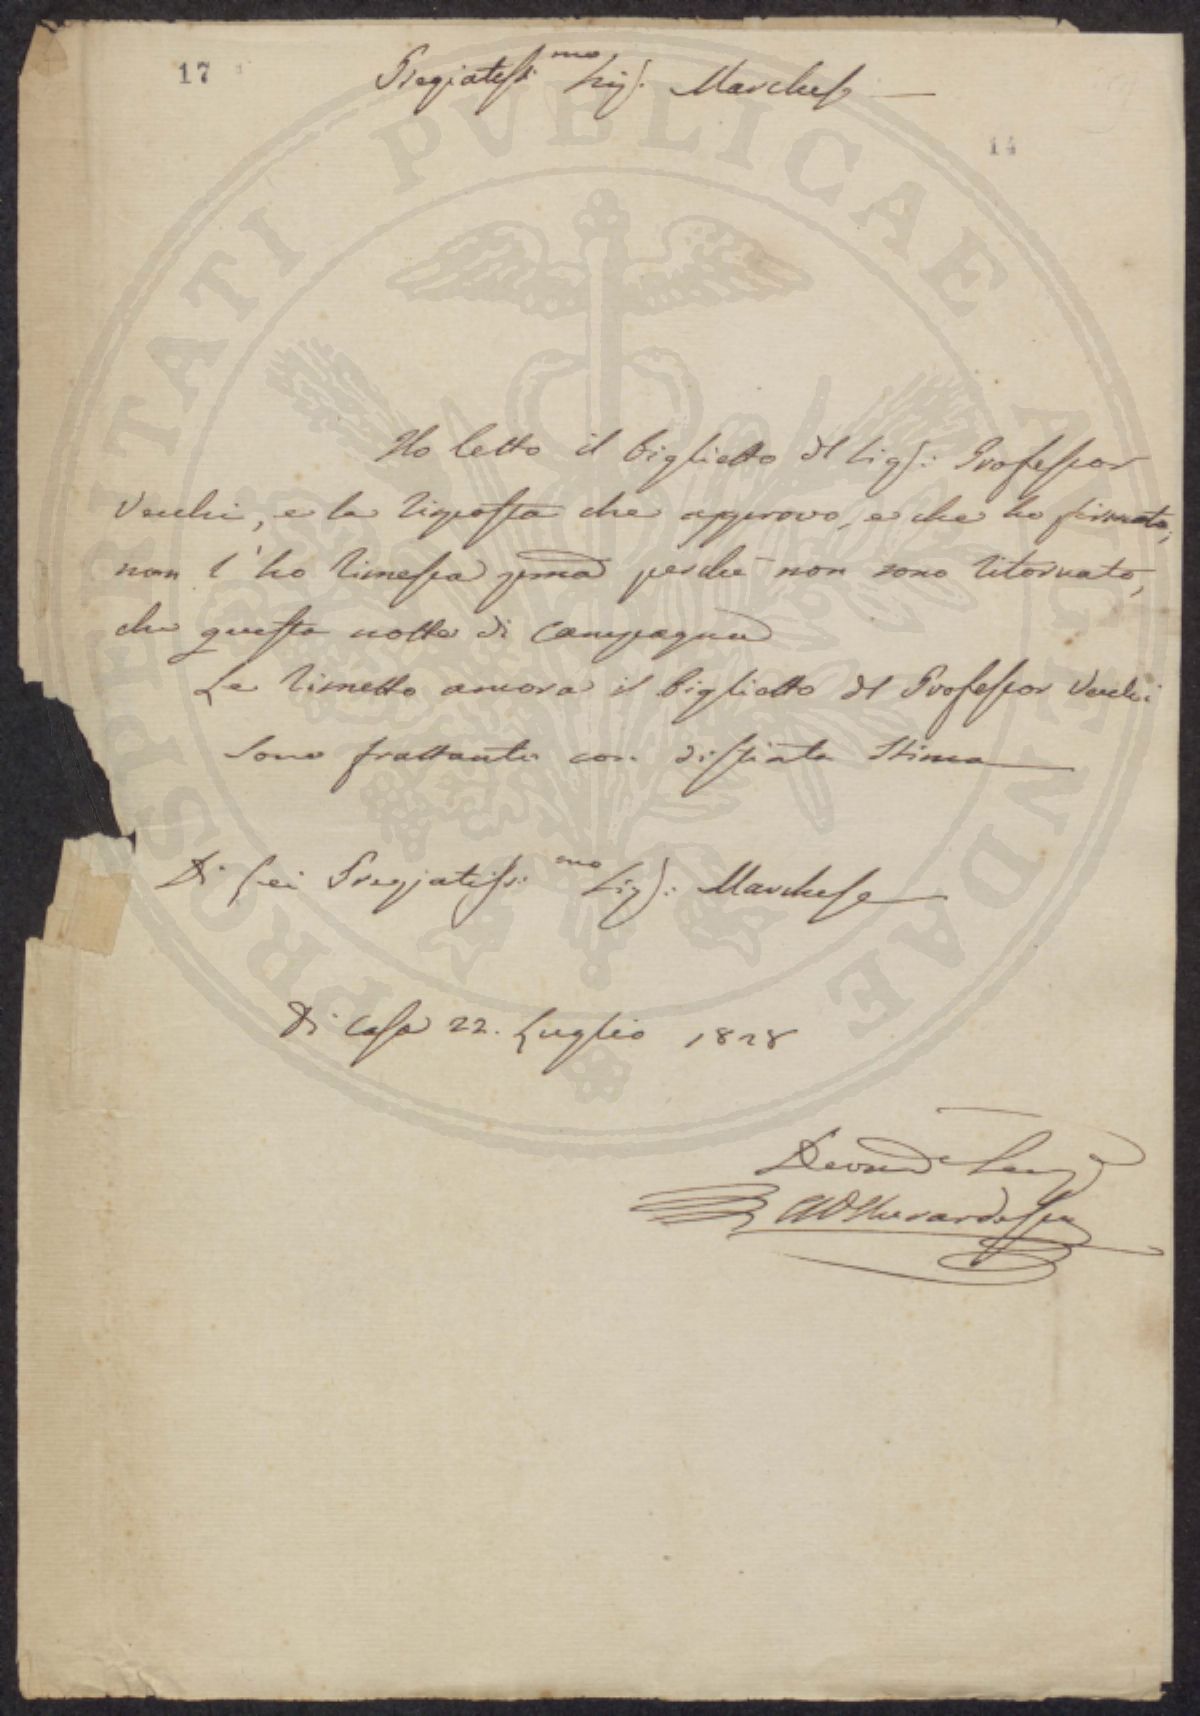 17
Pregiatissi.mo Sig.r Marchese
14
Ho letto il biglietto del Sig.r Professor
Vecchi, e la risposta che approvo, e che ho firmata,
non l'ho rimessa prima perchè non sono ritornato,
che questa notte di Campagna
Le rimetto ancora il biglietto del Professor Vecchi
Sono frattanto con distinta stima
Di Lei Pregiatissi.mo Sig.r Marchese
Di Casa 22. Luglio 1828
PROSPERITATI PVBLICAE AVGENDAE